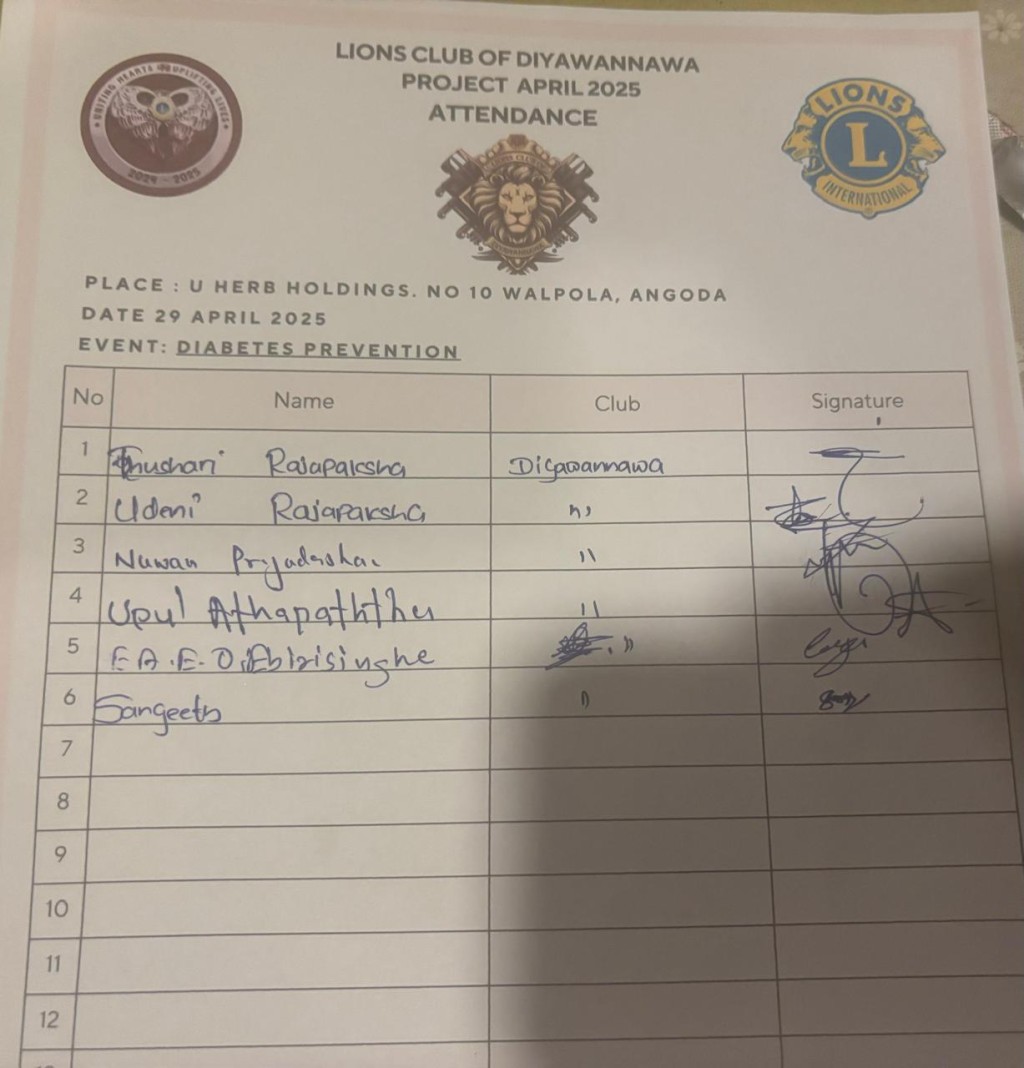 LIONS CLUB OF DIYAWANNAWA
PROJECT APRIL 2025
ATTENDANCE
UNITING HEARTS UPLIFTING LIVES
2024 - 2025
LIONS
L
INTERNATIONAL
PLACE : U HERB HOLDINGS. NO 10 WALPOLA, ANGODA
DATE 29 APRIL 2025
EVENT: DIABETES PREVENTION
No Name Club Signature
1 Thushari Rajapaksha Diyawannawa
2 Udeni Rajapaksha "
3 Nuwan Priyadarshan "
4 Upul Athapaththu "
5 E.A.E.D. "
6 Sangeeth "
7
8
9
10
11
12